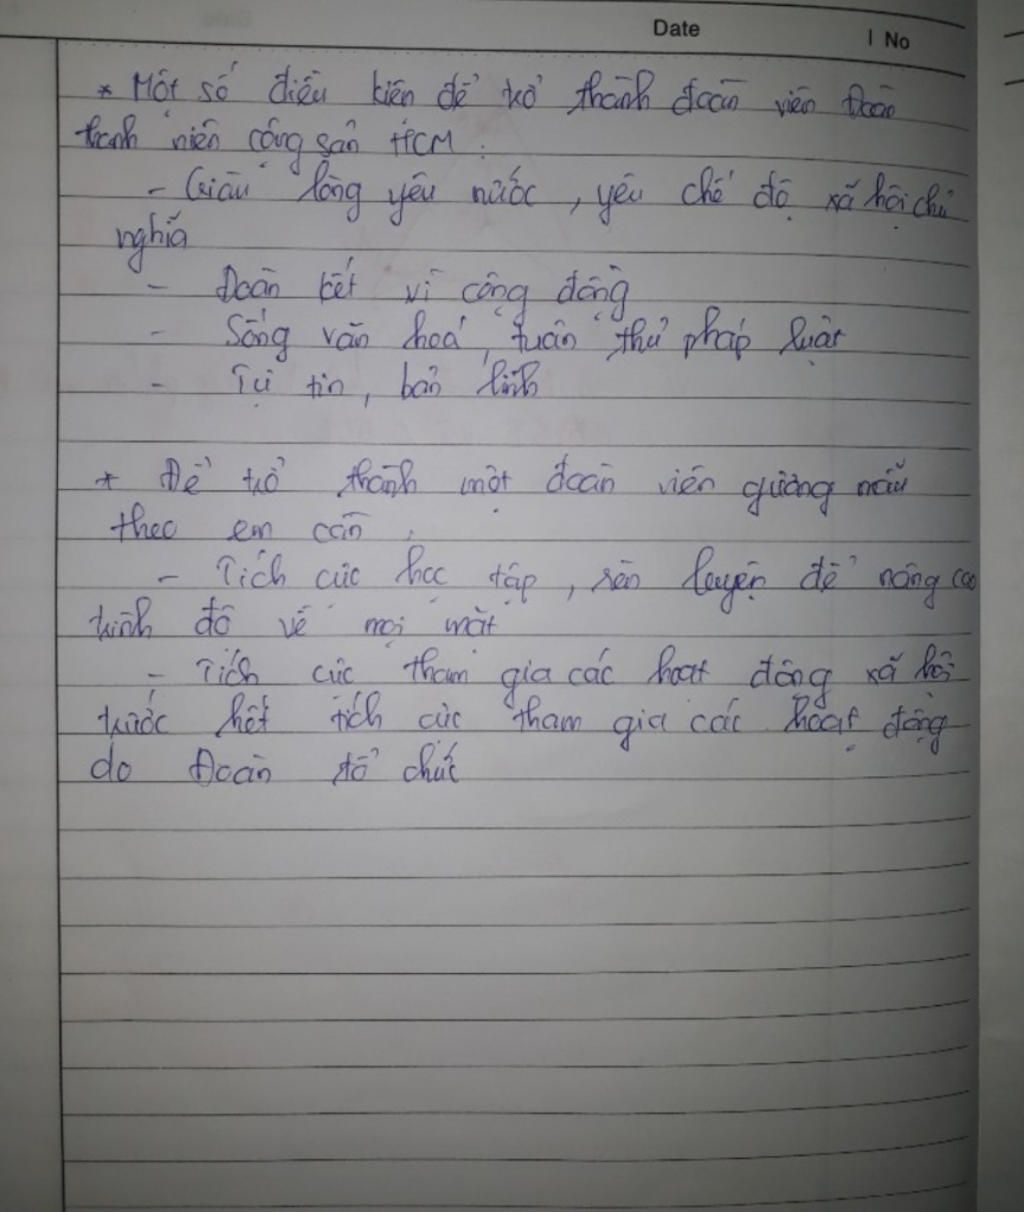 Date | No
* Một số điều kiện để trở thành đoàn viên Đoàn
thanh niên cộng sản HCM :
- Giàu lòng yêu nước, yêu chế độ xã hội chủ
nghĩa
- Đoàn kết vì cộng đồng
- Sống văn hoá, tuân thủ pháp luật
- Tự tin, bản lĩnh
* Để trở thành một đoàn viên gương mẫu
theo em cần :
- Tích cực học tập, rèn luyện để nâng cao
trình độ về mọi mặt
- Tích cực tham gia các hoạt động xã hội
trước hết tích cực tham gia các hoạt động
do Đoàn tổ chức